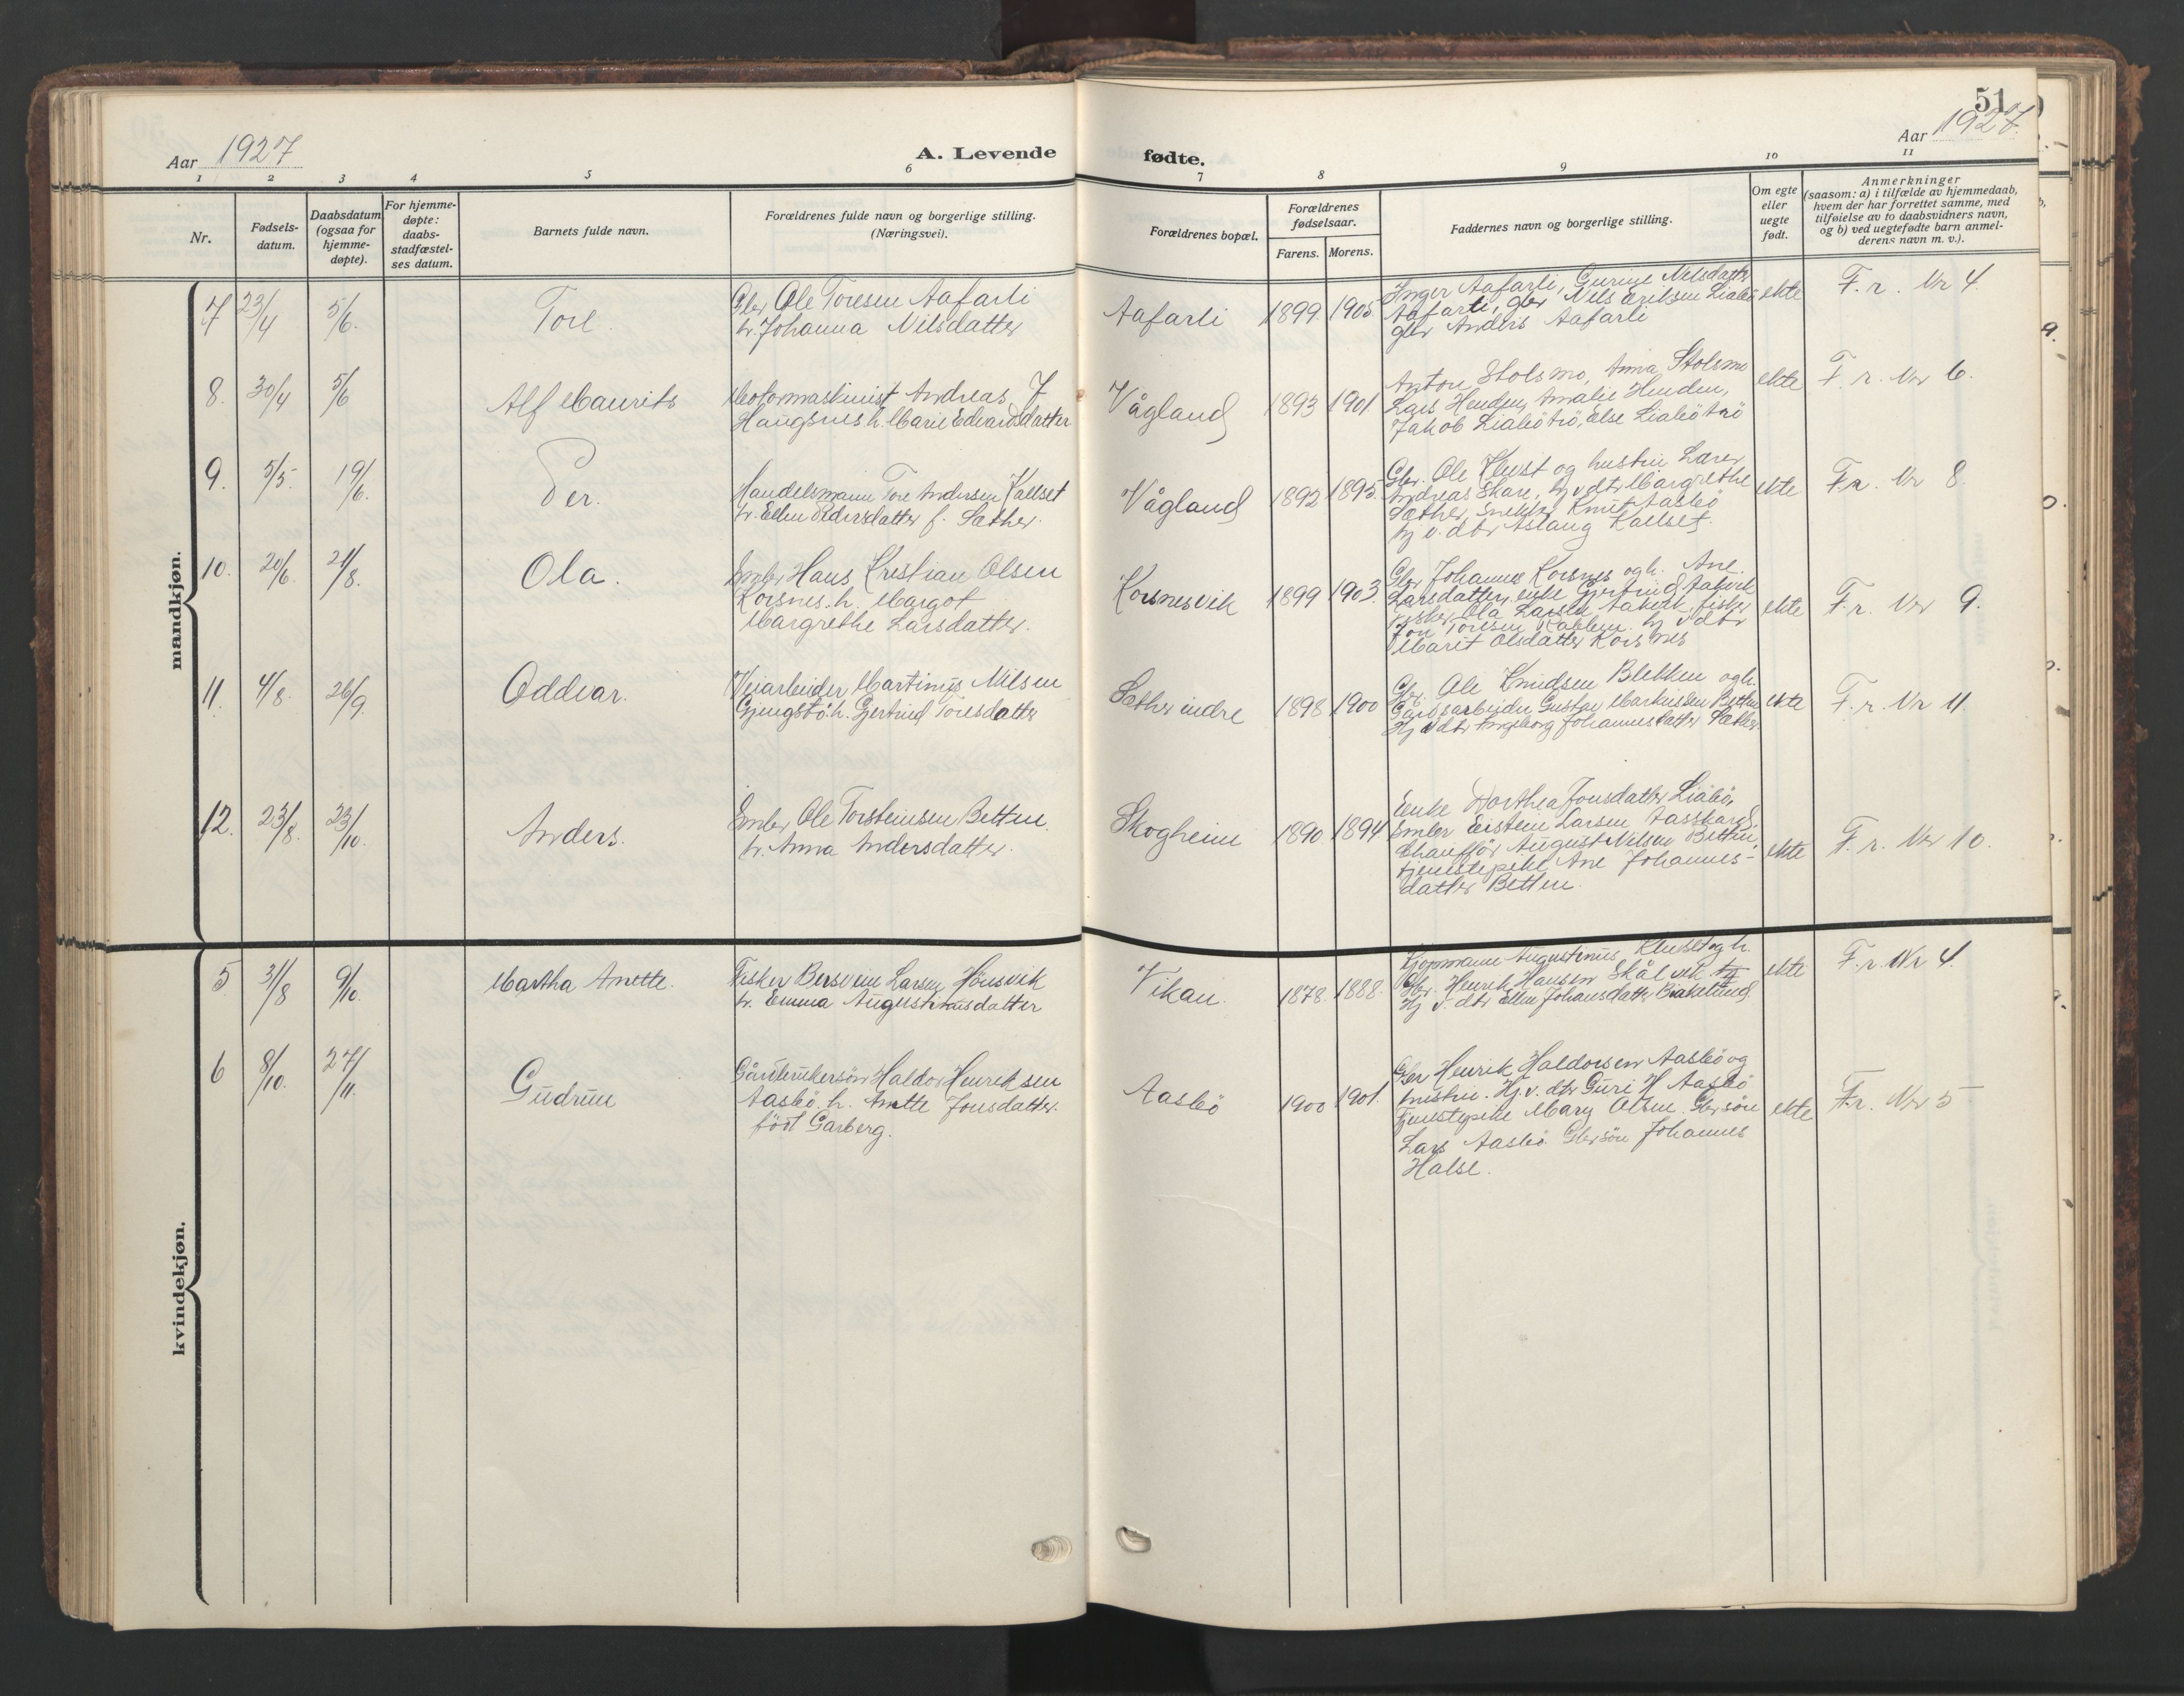 51
Aar 1927
A. Levende
fødte.
Aar 1927.
1 2 3 4 5 6 7 8 9 10 11
Nr.
Fødsels-
datum.
Daabsdatum
(ogsaa for
hjemme-
døpte).
For hjemme-
døpte:
daabs-
stadfæstel-
ses datum.
Barnets fulde navn.
Forældrenes fulde navn og borgerlige stilling.
(Næringsvei).
Forældrenes bopæl.
Forældrenes
fødselsaar.
Farens. Morens.
Faddernes navn og borgerlige stilling.
Om egte
eller
uegte
født.
Anmerkninger
(saasom: a) i tilfælde av hjemmedaab,
hvem der har forrettet samme, med
tilføielse av to daabsvidners navn,
og b) ved uegtefødte barn anmel-
derens navn m. v.).
mandkjøn.
7 23/4 5/6. Tore.
Gbr Ole Toresen Aafarli
h. Johanna Nilsdatter
Aafarli 1899 1905.
Inger Aafarli, Gurine Nilsdatter
Aafarli, gbr Nils Eriksen Liabø
gbr Anders Aafarli
ekte F. r. Nr 4.
8. 30/4 5/6 Alf Maurits
Motormaskinist Andreas J
Haugsnes h. Marie Edvardsdatter
Vågland 1893 1901
Anton Stolsmo, Anna Stolsmo
Lars Henden, Amalie Henden,
Jakob Liabøtrø, Else Liabøtrø
ekte F. r. Nr 6.
9. 5/5. 19/6. Per.
Handelsmann Tore Andersen Kallset
h. Ellen Pedersdatter f. Sæther.
Vågland 1892 1895.
Gbr. Ole Klevset og hustru Lærer
Andreas Skare, hj v. dtr Margrethe
Sæther, snekker Knut Aasbø
hj v. dtr Aslaug Kallset.
ekte F. r. Nr 8.
10. 20/6. 21/8. Ola.
Snekker Hans Kristian Olsen
Korsnes. h. Margot
Margrethe Larsdatter.
Korsnesvik 1899 1903.
Gbr Johannes Korsnes og h. Ane
Larsdatter, enke Gjertrud Aakvik
fisker Ola Larsen Aakvik, fisker
Jon Toresen Kahlem. hj v dtr
Marit Olsdatter Korsnes
ekte F. r. Nr 9.
11. 4/8. 26/9. Oddvar.
Veiarbeider Martinus Nilsen
Gjengstø. h. Gjertrud Toresdatter
Sæther indre 1898 1900
Gbr. Ole Knudsen Blekken og h.
Gårdsarbeider Gustav Markussen Betten
Hj v dtr Ingeborg Johannesdatter Sæther.
ekte F. r. Nr 11.
12. 23/8. 23/10. Anders.
Ole Torsteinsen Betten.
h. Anna Andersdatter.
Skogheim 1890 1894
Enke Dorthea Jonsdatter Liabø,
Eistein Larsen Aasskard,
Chauffør August Nilsen Betten,
tjenestepike Ane Johannes-
datter Betten.
ekte F. r. Nr 10.
kvindekjøn.
5. 31/8 9/10. Martha Anette.
Fisker Bersvein Larsen Hønsvik
h. Emma Augustinusdatter
Vikan. 1878. 1888.
Kjøpmann Augustinus Klevset og h.
Gbr. Henrik Hansen Skålvik
Hj v. dtr Ellen Johansdatter Bjakelund.
ekte F. r. Nr 4.
6 8/10. 27/11. Gudrun
Gårdbrukersøn Haldor Henriksen
Aasbø. h. Anette Jonsdatter.
født Garberg.
Aasbø 1900 1901.
Gbr Henrik Haldorsen Aasbø og
hustru. Hj. v. dtr Guri H Aasbø
Tjenestepike Mary Olsen. Gbr søn
Lars Aasbø. Gbr søn Johannes
Halse.
ekte F. r. Nr 5